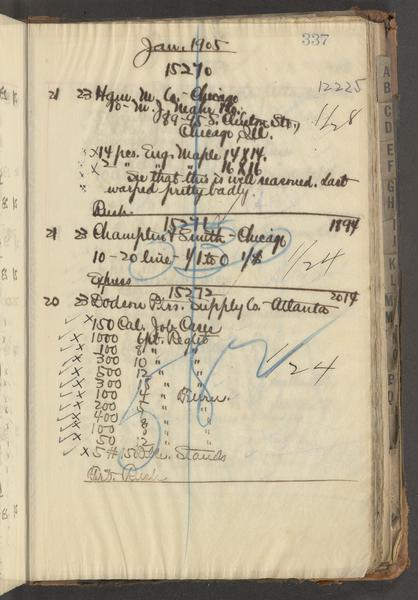 337
Jan. 1905
15270
12225
21 23 Ham. M. Co. - Chicago
1/28
189-95 S. Clinton Sts.,
Chicago Ill.
x x 14 pcs. Eng. Maple 14 x 14.
x 2 " " " 16 x 16
x See that this is well seasoned. Last
warped pretty badly.
Rush.
15271
1894
21 23 Champlin & Smith - Chicago
10 - 20 line - 1/1 to 0
1/24
Express
15272
2014
20 23 Dodson Prs. Supply Co. - Atlanta
✓ x 150 Cal. Job Cases
✓ x 1000 6pt. Reglet
1/24
✓ x 100 8 " "
✓ x 300 10 " "
✓ x 500 12 " "
✓ x 300 18 " "
✓ x 100 4 " Furn.
✓ x 200 5 " "
✓ x 400 6 " "
✓ x 100 8 " "
✓ x 50 12 " "
✓ x 5 # Stands
Rush
A
B
C
D
E
F
G
H
I
J
K
L
M
M
N
O
P
Q